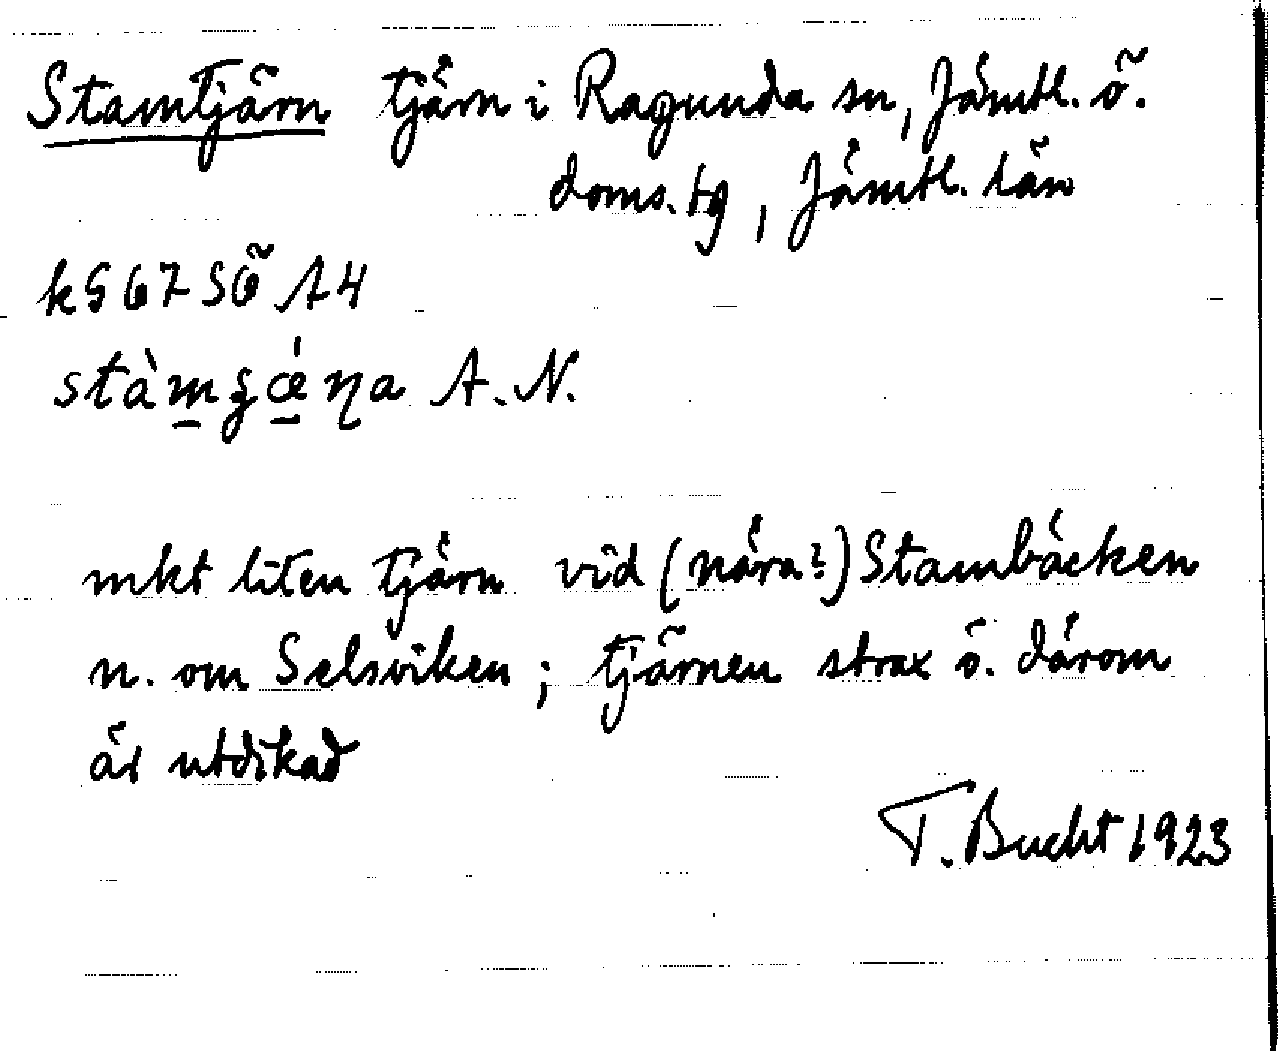 Stamtjärn tjärn i Ragunda sn, Jämtl. ö.
doms.tg, Jämtl. län
k§67SÖ A4
A.N.
mkt liten tjärn vid (nära?) Stambäcken
n. om Selsviken; tjärnen strax ö. därom
är utdikad
T. Bucht 1923